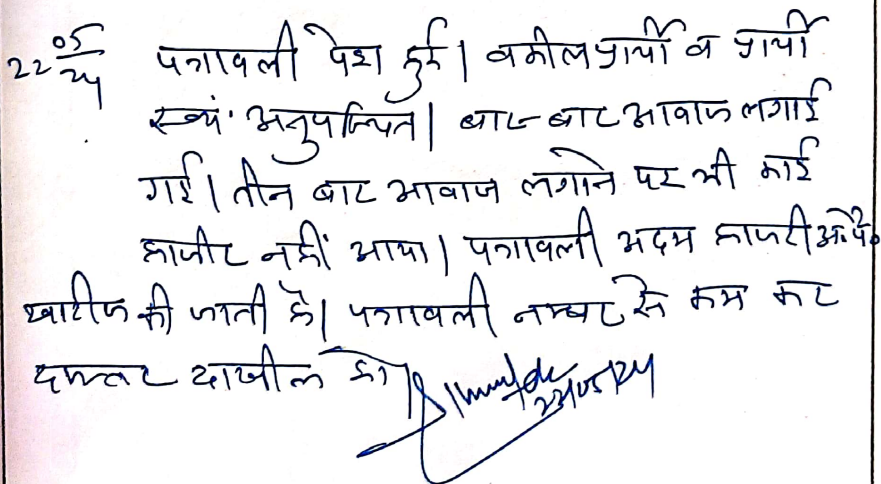 22 05/24 पत्रावली पेश हुई। वकील प्रार्थी व प्रार्थी
स्वयं अनुपस्थित। बार-बार आवाज लगाई
गई। तीन बार आवाज लगाने पर भी कोई
हाजीर नहीं आया। पत्रावली अदम हाजरी
खारीज की जाती है। पत्रावली नम्बर से कम कर
दफ्तर दाखील हो।